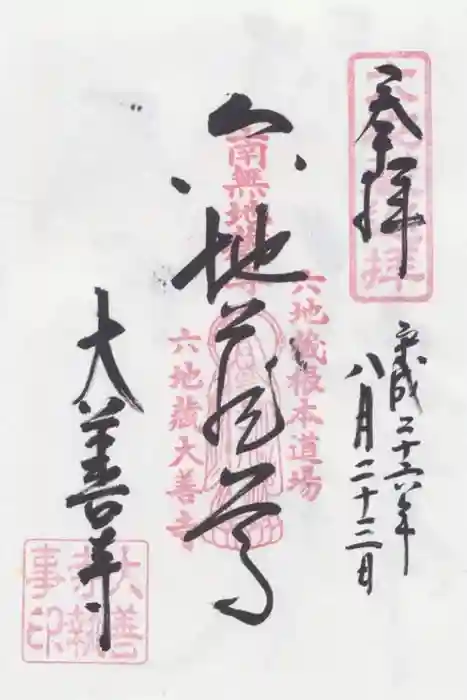 奉拝
平成二十六年
八月二十三日
六地蔵尊
南無地蔵尊
六地蔵根本道場
六地蔵大善寺
大善寺
大善
寺執
事印